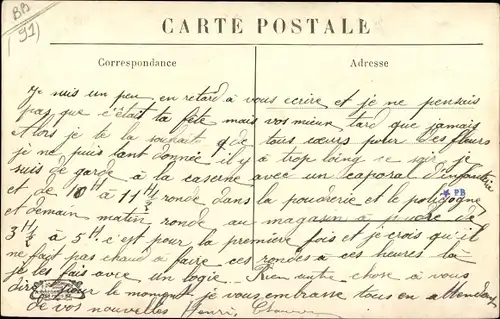 BB
(91)
CARTE POSTALE
Correspondance
Adresse
Je suis un peu en retard à vous ecrire et je ne pensais
pas que c'était ta fête mais vos mieux tard que jamais
Alors je te la souhaite de tous cœurs pour des fleurs
je ne puis tant donnée il y à trop loing ce soir je
suis de garde à la caserne avec un caporal d'infanterie
et de 10H à 11 H 1/2 ronde dans la poudrerie et le polygone
et demain matin ronde au magasin à poudre de
3 H 1/2 à 5H. c'est pour la première fois et je crois qu'il
ne faut pas chaud à faire ces rondes à ces heures là
je les fais avec un logie. Rien autre chose à vous
dire pour le moment je vous embrasse tous en attendant
de vos nouvelles Henri
PB